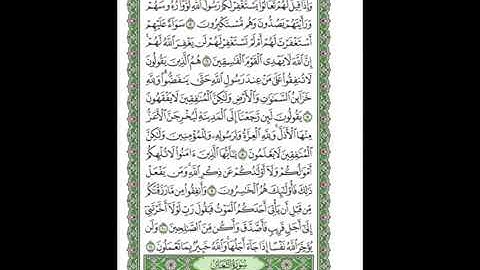 وَإِذَا قِيلَ لَهُمْ تَعَالَوْا۟ يَسْتَغْفِرْ لَكُمْ رَسُولُ ٱللَّهِ لَوَّوْا۟ رُءُوسَهُمْ
وَرَأَيْتَهُمْ يَصُدُّونَ وَهُم مُّسْتَكْبِرُونَ ٥ سَوَآءٌ عَلَيْهِمْ
أَسْتَغْفَرْتَ لَهُمْ أَمْ لَمْ تَسْتَغْفِرْ لَهُمْ لَن يَغْفِرَ ٱللَّهُ لَهُمْ
إِنَّ ٱللَّهَ لَا يَهْدِى ٱلْقَوْمَ ٱلْفَـٰسِقِينَ ٦ هُمُ ٱلَّذِينَ يَقُولُونَ
لَا تُنفِقُوا۟ عَلَىٰ مَنْ عِندَ رَسُولِ ٱللَّهِ حَتَّىٰ يَنفَضُّوا۟ وَلِلَّهِ
خَزَآئِنُ ٱلسَّمَـٰوَٰتِ وَٱلْأَرْضِ وَلَـٰكِنَّ ٱلْمُنَـٰفِقِينَ لَا يَفْقَهُونَ
٧ يَقُولُونَ لَئِن رَّجَعْنَآ إِلَى ٱلْمَدِينَةِ لَيُخْرِجَنَّ ٱلْأَعَزُّ
مِنْهَا ٱلْأَذَلَّ وَلِلَّهِ ٱلْعِزَّةُ وَلِرَسُولِهِۦ وَلِلْمُؤْمِنِينَ وَلَـٰكِنَّ
ٱلْمُنَـٰفِقِينَ لَا يَعْلَمُونَ ٨ يَـٰٓأَيُّهَا ٱلَّذِينَ ءَامَنُوا۟ لَا تُلْهِكُمْ
أَمْوَٰلُكُمْ وَلَآ أَوْلَـٰدُكُمْ عَن ذِكْرِ ٱللَّهِ وَمَن يَفْعَلْ
ذَٰلِكَ فَأُو۟لَـٰٓئِكَ هُمُ ٱلْخَـٰسِرُونَ ٩ وَأَنفِقُوا۟ مِن مَّا رَزَقْنَـٰكُم
مِّن قَبْلِ أَن يَأْتِىَ أَحَدَكُمُ ٱلْمَوْتُ فَيَقُولَ رَبِّ لَوْلَآ أَخَّرْتَنِىٓ
إِلَىٰٓ أَجَلٍ قَرِيبٍ فَأَصَّدَّقَ وَأَكُن مِّنَ ٱلصَّـٰلِحِينَ ١٠ وَلَن
يُؤَخِّرَ ٱللَّهُ نَفْسًا إِذَا جَآءَ أَجَلُهَا وَٱللَّهُ خَبِيرٌۢ بِمَا تَعْمَلُونَ ١١
سُورَةُ التَّغَابُنِ